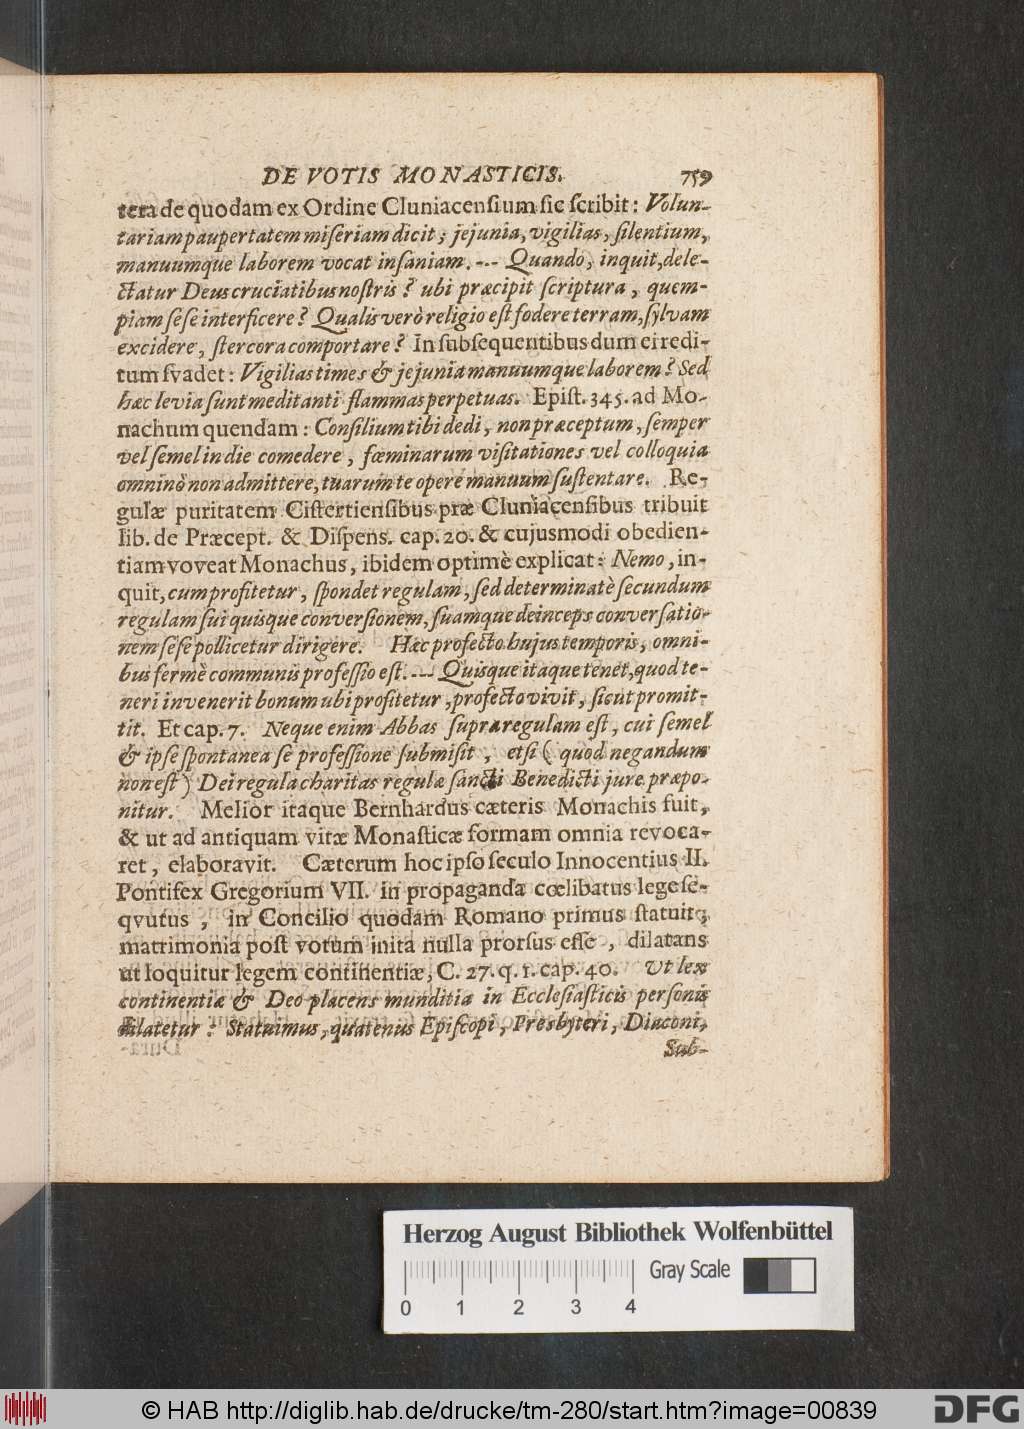 DE VOTIS MONASTICIS. 759
tera de quodam ex Ordine Cluniacensium sic scribit: Volun-
tariam paupertatem miseriam dicit; jejunia, vigilias, silentium,
manuumque laborem vocat insaniam. --- Quando, inquit, dele-
ctatur Deus cruciatibus nostris? ubi præcipit scriptura, quem-
piam sese interficere? Qualis verò religio est fodere terram, sylvam
excidere, stercora comportare? In subsequentibus dum ei redi-
tum svadet: Vigilias times & jejunia manuumque laborem? Sed
hæc levia sunt meditanti flammas perpetuas. Epist. 345. ad Mo-
nachum quendam: Consilium tibi dedi, non præceptum, semper
vel semel in die comedere, fœminarum visitationes vel colloquia
omninò non admittere, tuarum te opere manuum sustentare. Re-
gulæ puritatem Cistertiensibus præ Cluniacensibus tribuit
lib. de Præcept. & Dispens. cap. 20. & cujusmodi obedien-
tiam voveat Monachus, ibidem optimè explicat: Nemo, in-
quit, cum profitetur, spondet regulam, sed determinatè secundum
regulam sui quisque conversionem, suamque deinceps conversatio-
nem sese pollicetur dirigere. Hæc profecto hujus temporis, omni-
bus fermè communis professio est. --- Quisque itaque tenet, quod te-
neri invenerit bonum ubi profitetur, profecto vivit, sicut promit-
tit. Et cap. 7. Neque enim Abbas supra regulam est, cui semel
& ipse spontanea se professione submisit, etsi (quod negandum
non est) Dei regula charitas regulæ sancti Benedicti jure præpo-
nitur. Melior itaque Bernhardus cæteris Monachis fuit,
& ut ad antiquam vitæ Monasticæ formam omnia revoca-
ret, elaboravit. Cæterum hoc ipso seculo Innocentius II.
Pontifex Gregorium VII. in propaganda cœlibatus lege se-
qvutus, in Concilio quodam Romano primus statuit,
matrimonia post votum inita nulla prorsus esse, dilatans
ut loquitur legem continentiæ, C. 27. q. 1. cap. 40. Ut lex
continentiæ & Deo placens munditia in Ecclesiasticis personis
dilatetur: Statuimus, quatenus Episcopi, Presbyteri, Diaconi,
Sub-
Herzog August Bibliothek Wolfenbüttel
Gray Scale
0 1 2 3 4
© HAB http://diglib.hab.de/drucke/tm-280/start.htm?image=00839
DFG